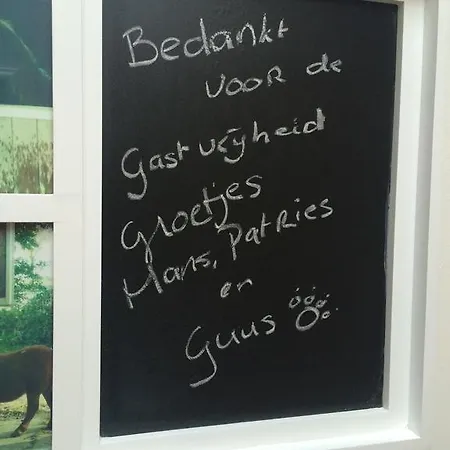 Bedankt
voor de
Gastvrijheid
Groetjes
Hans, Patries
en
Guus